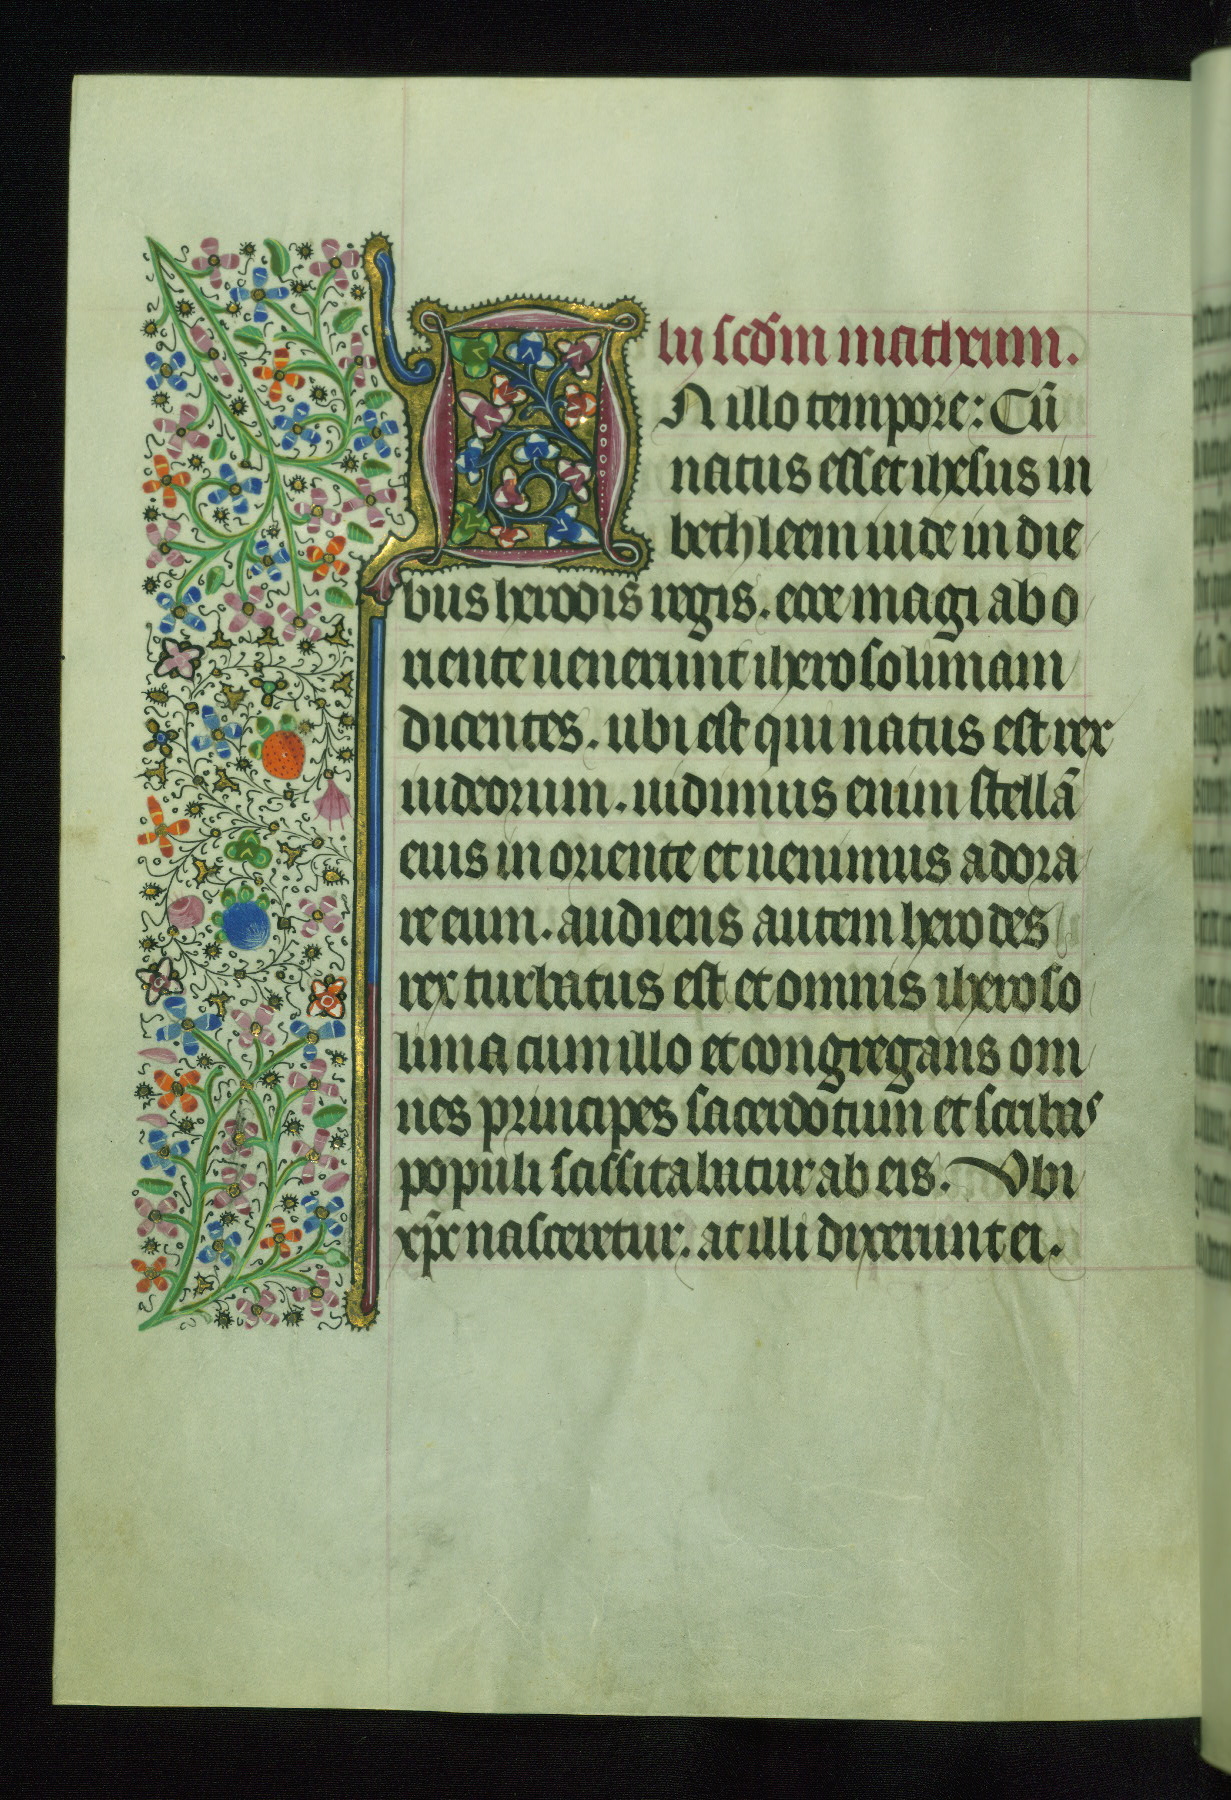 lii scdm matheum.
In illo tempore: Cū
natus esset ihesus in
bethleem iude in die
bus herodis regis. ecce magi ab o
riente uenerunt iherosolimam
dicentes. ubi est qui natus est rex
iudeorum. uidimus enim stellā
eius in oriente et uenimus adora
re eum. audiens autem herodes
rex turbatus est et omnis iheroso
lima cum illo et congregans om
nes principes sacerdotum et scribas
populi scissitabatur ab eis. Vbi
xp̄c nasceretur. at illi dixerunt ei.